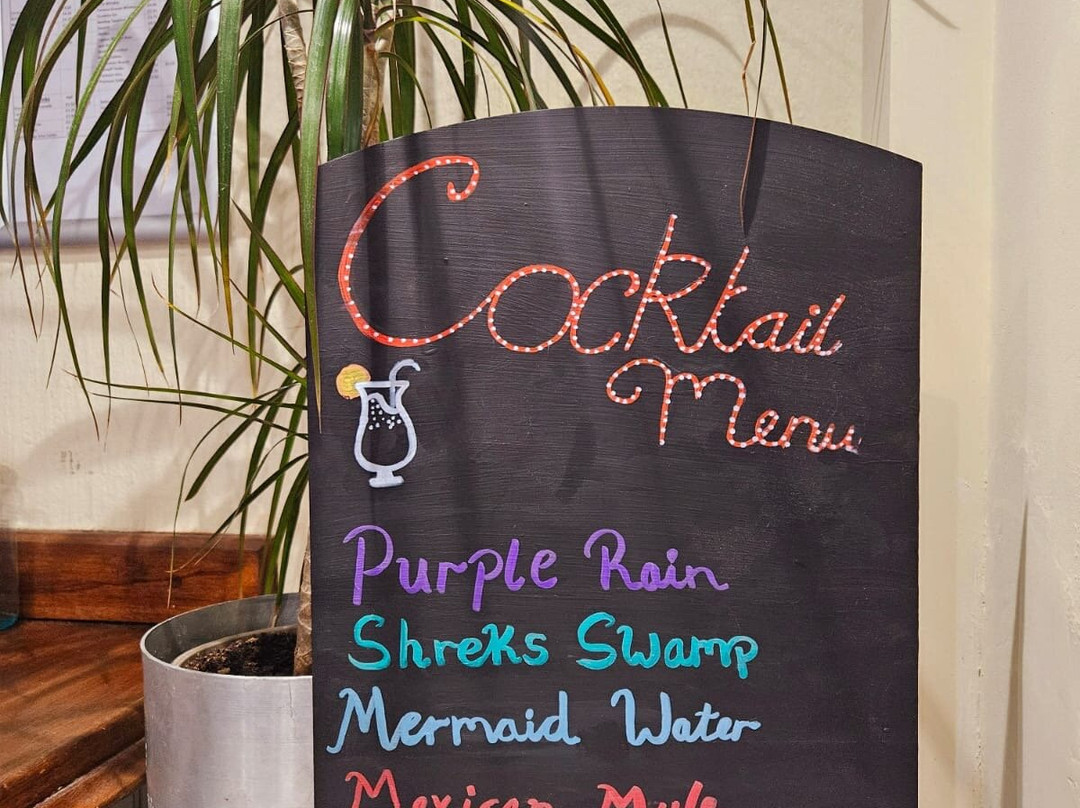 Cocktail
Menu
Purple Rain
Shreks Swamp
Mermaid Water
Mexican Mule